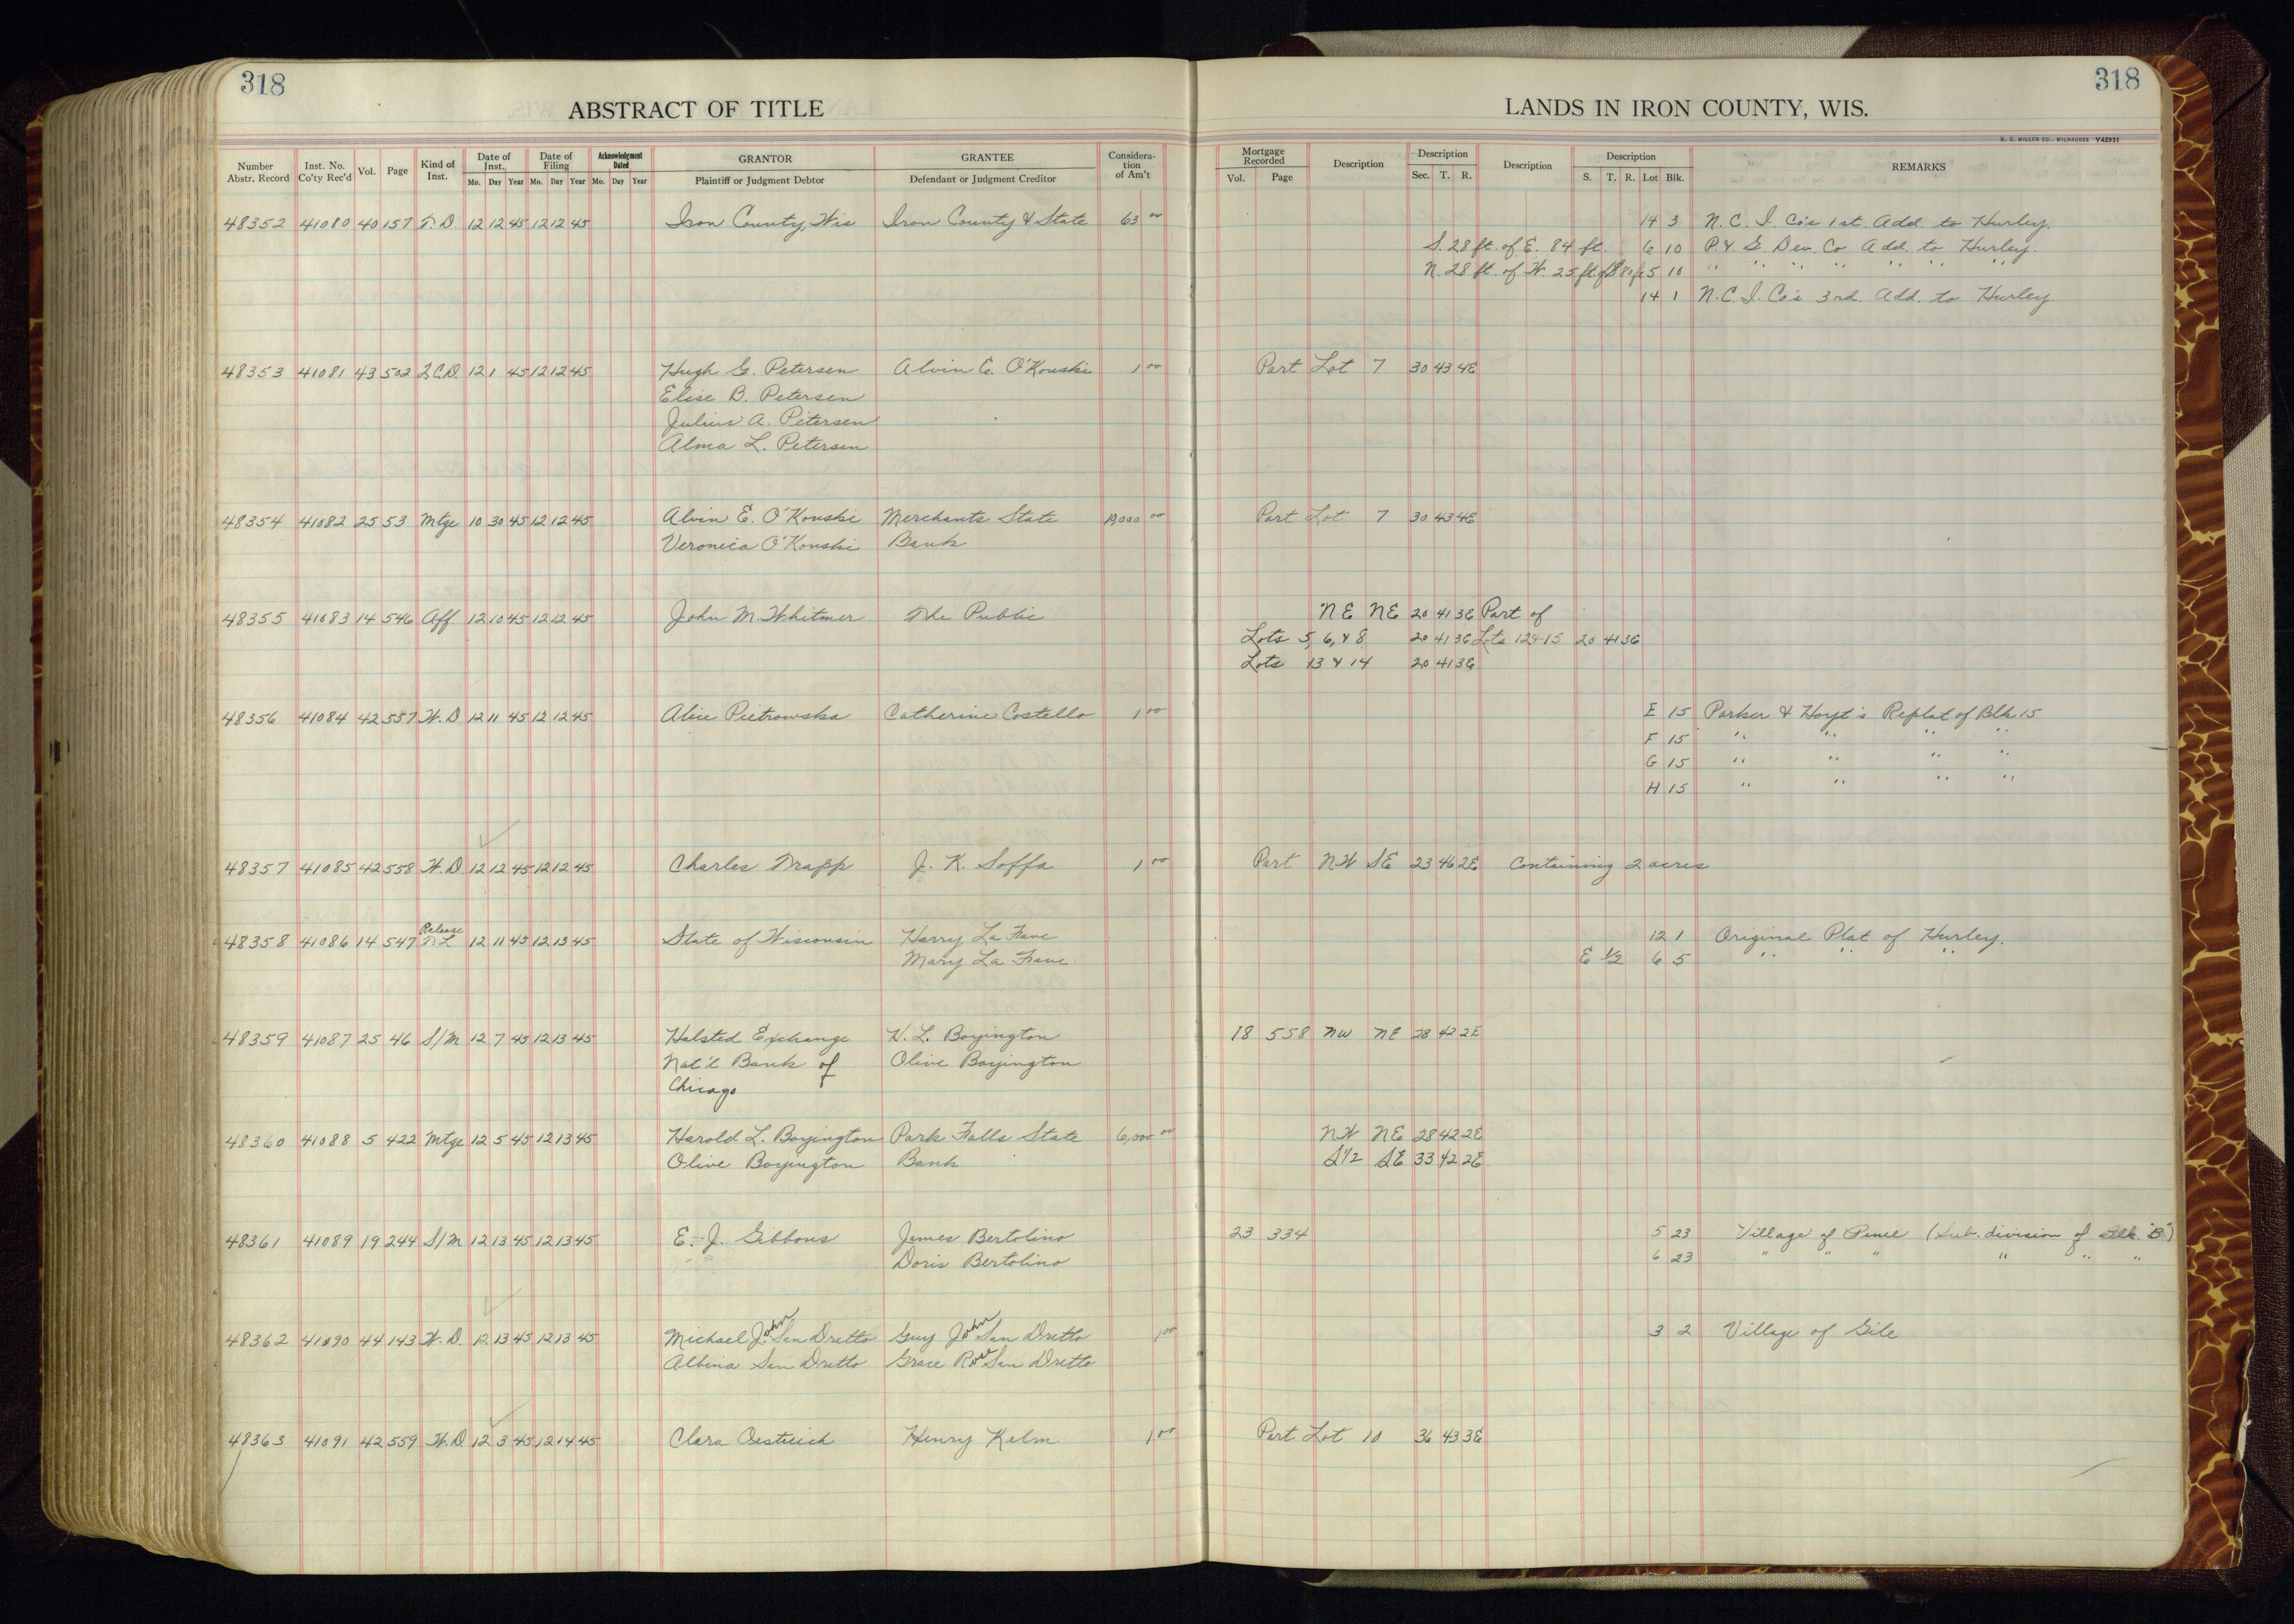 318
318
ABSTRACT OF TITLE
LANDS IN IRON COUNTY, WIS.
H. C. MILLER CO., MILWAUKEE Y42931
Number Abstr. Record Inst. No. Co'ty Rec'd Vol. Page Kind of Inst. Date of Inst. Mo. Day Year Date of Filing Mo. Day Year Acknowledgment Dated Mo. Day Year GRANTOR Plaintiff or Judgment Debtor GRANTEE Defendant or Judgment Creditor Considera- tion of Am't Mortgage Recorded Vol. Page Description Description Sec. T. R. Description Description S. T. R. Lot Blk. REMARKS
48352 41080 40 157 T.D. 12 12 45 12 12 45 Iron County, Wis Iron County & State 63 00 14 3 N.C.I. Co's 1st. Add. to Hurley.
S. 28 ft. of E. 84 ft. 6 10 P. & G. Dev. Co Add. to Hurley.
N. 28 ft. of W. 25 ft. 5 10 " " " " " " "
14 1 N.C.I. Co's 3rd. Add. to Hurley.
48353 41081 43 502 Q.C.D. 12 1 45 12 12 45 Hugh G. Petersen Alvin E. O'Konski 1 00 Part Lot 7 30 43 4E
Elise B. Petersen
Julius A. Petersen
Alma L. Petersen
48354 41082 25 53 Mtge 10 30 45 12 12 45 Alvin E. O'Konski Merchants State 19,000 00 Part Lot 7 30 43 4E
Veronica O'Konski Bank
48355 41083 14 546 Aff 12 10 45 12 12 45 John M. Whitmer The Public NE NE 20 41 3E Part of
Lots 5, 6, & 8 20 41 3E Lots 12 & 15 20 41 3E
Lots 13 & 14 20 41 3E
48356 41084 42 557 W.D 12 11 45 12 12 45 Alice Pietrowska Catherine Costello 1 00 E 15 Parker & Hoyt's Replat of Blk 15
F 15 " " " "
G 15 " " " "
H 15 " " " "
48357 41085 42 558 W.D. 12 12 45 12 12 45 Charles Trapp J. K. Soffa 1 00 Part NW SE 23 46 2E Containing 2 acres
Release
48358 41086 14 547 TL 12 11 45 12 13 45 State of Wisconsin Harry La Fave 12 1 Original Plat of Hurley.
Mary La Fave E 1/2 6 5 " " "
48359 41087 25 46 S/M 12 7 45 12 13 45 Halsted Exchange H. L. Boyington 18 558 NW NE 28 42 2E
Nat'l Bank of Olive Boyington
Chicago
48360 41088 5 422 Mtge 12 5 45 12 13 45 Harold L. Boyington Park Falls State 6,000 00 NW NE 28 42 2E
Olive Boyington Bank S1/2 SE 33 42 2E
48361 41089 19 244 S/M 12 13 45 12 13 45 E. J. Gibbons James Bertolino 23 334 5 23 Village of Pence (Sub. division of Blk. "B")
Doris Bertolino 6 23 " " " " " "
48362 41090 44 143 W.D. 12 13 45 12 13 45 Michael John San Dretto Guy John San Dretto 1 00 3 2 Village of Gile
Albina San Dretto Grace Rose San Dretto
48363 41091 42 559 W.D 12 3 45 12 14 45 Clara Oestreich Henry Kelm 1 00 Part Lot 10 36 43 3E